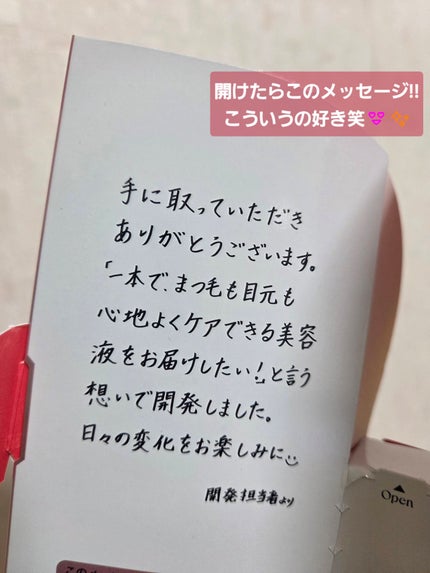 開けたらこのメッセージ!!
こういうの好き笑
手に取っていただき
ありがとうございます。
「一本で、まつ毛も目元も
心地よくケアできる美容
液をお届けしたい!」と言う
想いで開発しました。
日々の変化をお楽しみに
開発担当者より
Open